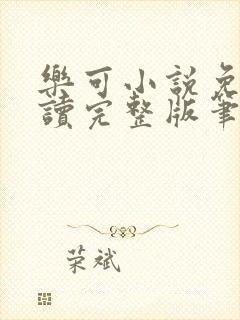 樂可小說免
讀完整版筆
荣斌